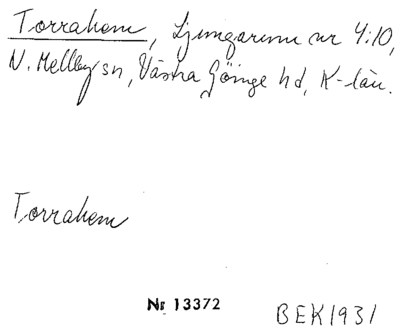 Torrahem, Ljungarum nr 4:10,
N. Mellby sn, Västra Göinge hd, K-län.
Torrahem
Nr 13372
BEK1931